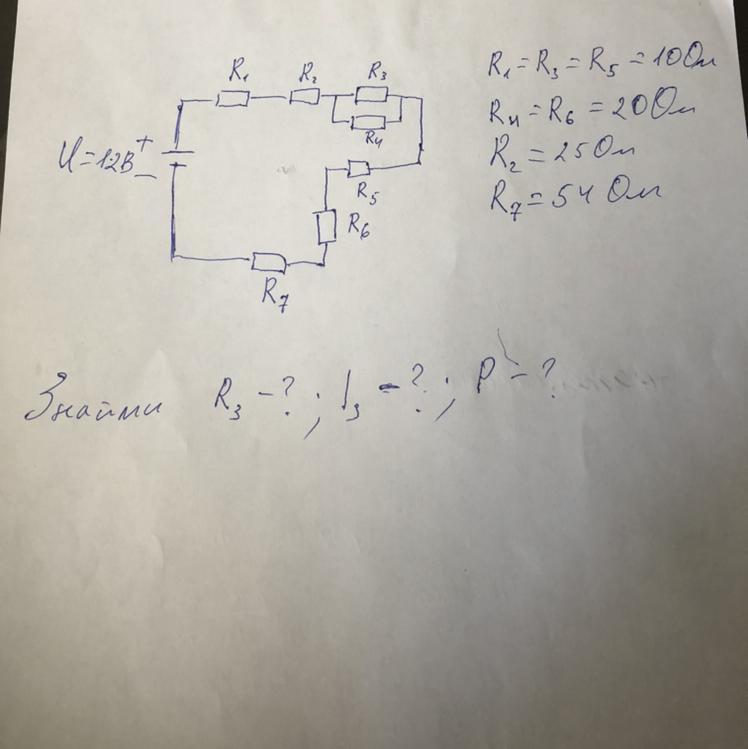 R₁ R₂ R₃
R₄
U=12В + −
R₅
R₆
R₇
R₁=R₃=R₅=10Ом
R₄=R₆=20Ом
R₂=25Ом
R₇=54 Ом
Знайти R₃-?; I₃-?; P-?